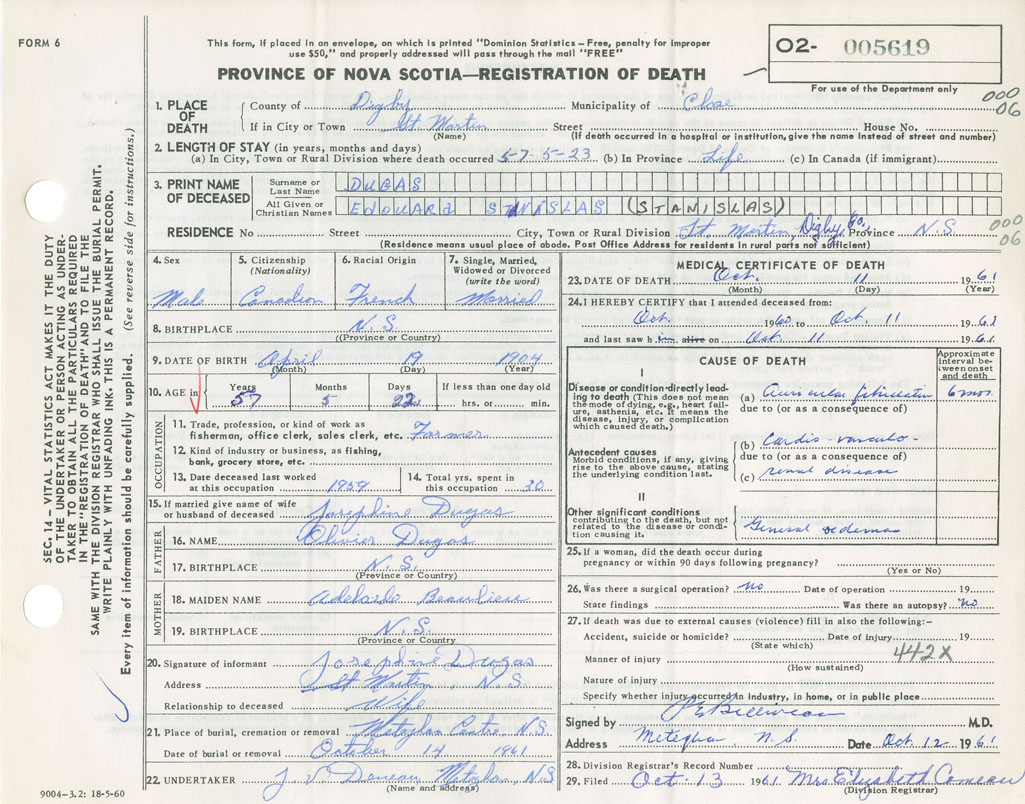 FORM 6
This form, if placed in an envelope, on which is printed "Dominion Statistics – Free, penalty for improper
use $50," and properly addressed will pass through the mail "FREE"
PROVINCE OF NOVA SCOTIA—REGISTRATION OF DEATH
O2- 005619
For use of the Department only
000
06
SEC. 14 – VITAL STATISTICS ACT MAKES IT THE DUTY
OF THE UNDERTAKER OR PERSON ACTING AS UNDER-
TAKER TO OBTAIN ALL THE PARTICULARS REQUIRED
IN THE "REGISTRATION OF DEATH" AND TO FILE THE
SAME WITH THE DIVISION REGISTRAR WHO SHALL ISSUE THE BURIAL PERMIT.
WRITE PLAINLY WITH UNFADING INK. THIS IS A PERMANENT RECORD.
Every item of information should be carefully supplied. (See reverse side for instructions.)
1. PLACE OF DEATH
County of Digby Municipality of Clare
If in City or Town St Martin Street House No.
(Name) (If death occurred in a hospital or institution, give the name instead of street and number)
2. LENGTH OF STAY (in years, months and days)
(a) In City, Town or Rural Division where death occurred 57-5-23 (b) In Province Life (c) In Canada (if immigrant)
3. PRINT NAME OF DECEASED
Surname or Last Name DUGAS
All Given or Christian Names EDOUARD STANISLAS (STANISLAS)
RESIDENCE No Street City, Town or Rural Division St. Martin, Digby Co, Province N.S.
(Residence means usual place of abode. Post Office Address for residents in rural parts not sufficient)
000
06
4. Sex
Male
5. Citizenship
(Nationality)
Canadian
6. Racial Origin
French
7. Single, Married,
Widowed or Divorced
(write the word)
Married
8. BIRTHPLACE N.S.
(Province or Country)
9. DATE OF BIRTH April 19 1904
(Month) (Day) (Year)
10. AGE in
Years Months Days If less than one day old
57 5 22 hrs. or min.
OCCUPATION
11. Trade, profession, or kind of work as
fisherman, office clerk, sales clerk, etc. Farmer
12. Kind of industry or business, as fishing,
bank, grocery store, etc.
13. Date deceased last worked
at this occupation 1959
14. Total yrs. spent in
this occupation 30
15. If married give name of wife
or husband of deceased Josephine Dugas
FATHER
16. NAME Olivier Dugas
17. BIRTHPLACE N.S.
(Province or Country)
MOTHER
18. MAIDEN NAME Adelaide Beaulieu
19. BIRTHPLACE N.S.
(Province or Country
20. Signature of informant Josephine Dugas
Address St Martin, N.S.
Relationship to deceased Wife
21. Place of burial, cremation or removal Meteghan Centre N.S.
Date of burial or removal October 14 1961
22. UNDERTAKER J V Meteghan, N.S
(Name and address)
9004-3.2: 18-5-60
MEDICAL CERTIFICATE OF DEATH
23. DATE OF DEATH Oct. 11 1961
(Month) (Day) (Year)
24. I HEREBY CERTIFY that I attended deceased from:
Oct. 1960 to Oct. 11 1961
and last saw him alive on Oct 11 1961
CAUSE OF DEATH
Approximate
interval be-
tween onset
and death
I
Disease or condition directly lead-
ing to death (This does not mean
the mode of dying, e.g., heart fail-
ure, asthenia, etc. It means the
disease, injury, or complication
which caused death.)
(a) Auricular fibrillation 6 mos.
due to (or as a consequence of)
Antecedent causes
Morbid conditions, if any, giving
rise to the above cause, stating
the underlying condition last.
(b) Cardio-vasculo-
due to (or as a consequence of)
(c) renal disease
II
Other significant conditions
contributing to the death, but not
related to the disease or condi-
tion causing it.
General oedema
25. If a woman, did the death occur during
pregnancy or within 90 days following pregnancy?
(Yes or No)
26. Was there a surgical operation? No Date of operation 19
State findings Was there an autopsy? No
27. If death was due to external causes (violence) fill in also the following:–
Accident, suicide or homicide? Date of injury 19
(State which)
442X
Manner of injury
(How sustained)
Nature of injury
Specify whether injury occurred in industry, in home, or in public place
Signed by P E Belliveau M.D.
Address Meteghan, N.S. Date Oct. 12 1961
28. Division Registrar's Record Number
29. Filed Oct 13 1961 Mrs Elizabeth Comeau
(Division Registrar)